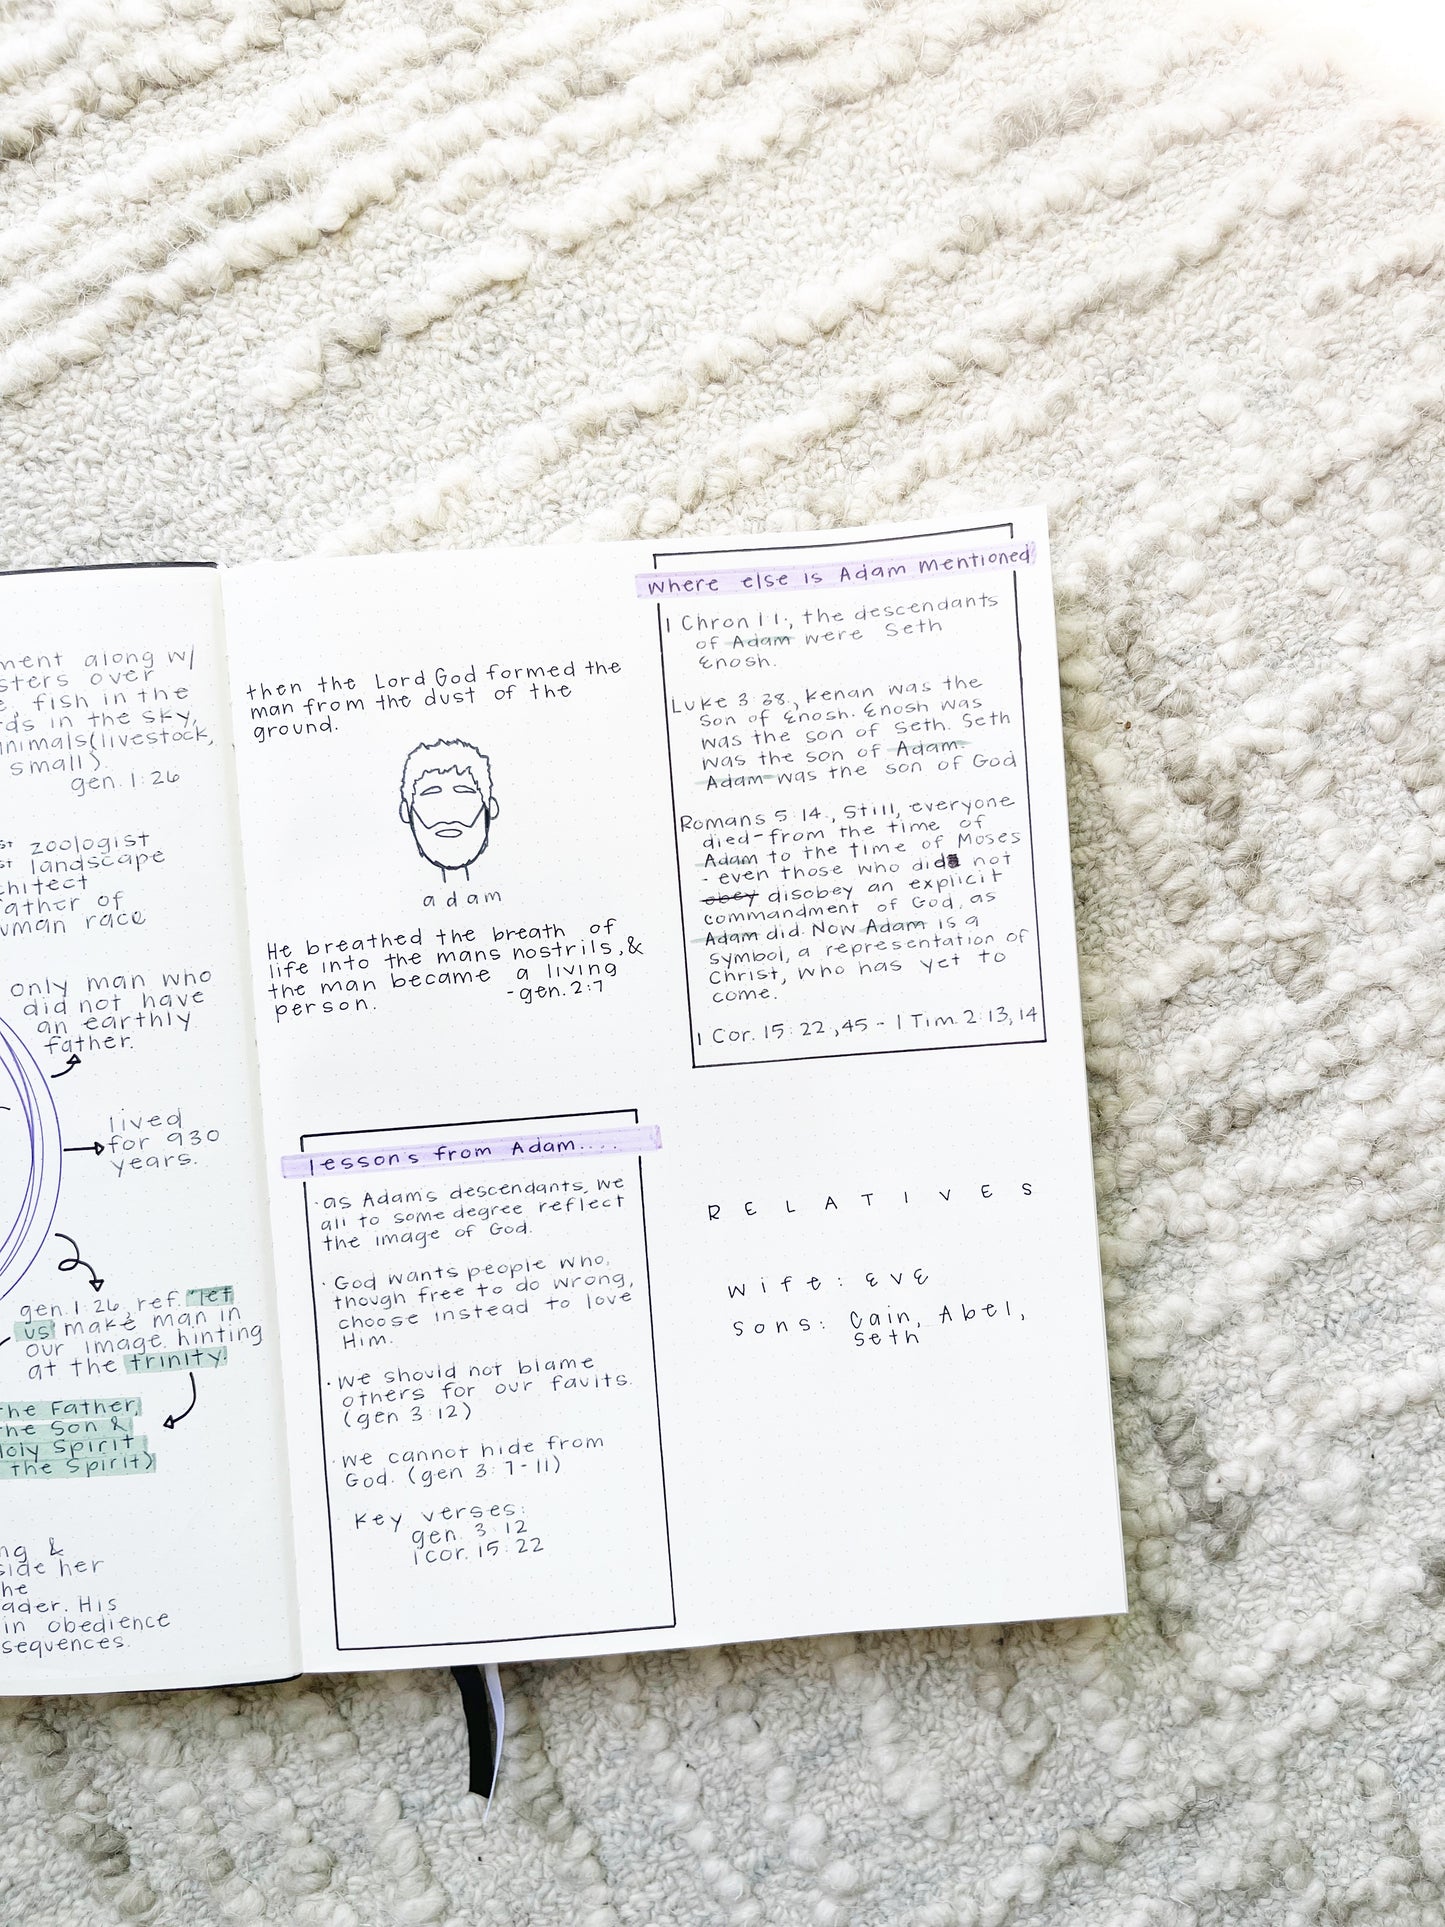 ment along w/
sters over
e, fish in the
rds in the sky,
animals(livestock,
small).
gen. 1:26
st zoologist
st landscape
chitect
father of
uman race
only man who
did not have
an earthly
father.
lived
for 930
years.
gen. 1:26, ref. "let
us" make man in
our image, hinting
at the trinity.
the Father,
the Son &
Holy Spirit
the Spirit)
ng &
side her
he
ader. His
in obedience
sequences.
then the Lord God formed the
man from the dust of the
ground.
adam
He breathed the breath of
life into the mans nostrils, &
the man became a living
person. -gen. 2:7
lessons from Adam....
· as Adam's descendants, we
all to some degree reflect
the image of God.
· God wants people who,
though free to do wrong,
choose instead to love
Him.
· we should not blame
others for our faults.
(gen 3:12)
· we cannot hide from
God. (gen 3:7-11)
Key verses:
gen. 3:12
1 cor. 15:22
where else is Adam mentioned
1 Chron 1:1:, the descendants
of Adam were Seth
Enosh.
Luke 3:38., Kenan was the
son of Enosh. Enosh was
was the son of Seth. Seth
was the son of Adam.
Adam was the son of God
Romans 5:14., Still, everyone
died-from the time of
Adam to the time of Moses
- even those who did not
obey disobey an explicit
commandment of God, as
Adam did. Now Adam is a
symbol, a representation of
Christ, who has yet to
come.
1 Cor. 15:22,45 - 1 Tim. 2:13,14
RELATIVES
wife: Eve
sons: Cain, Abel,
Seth